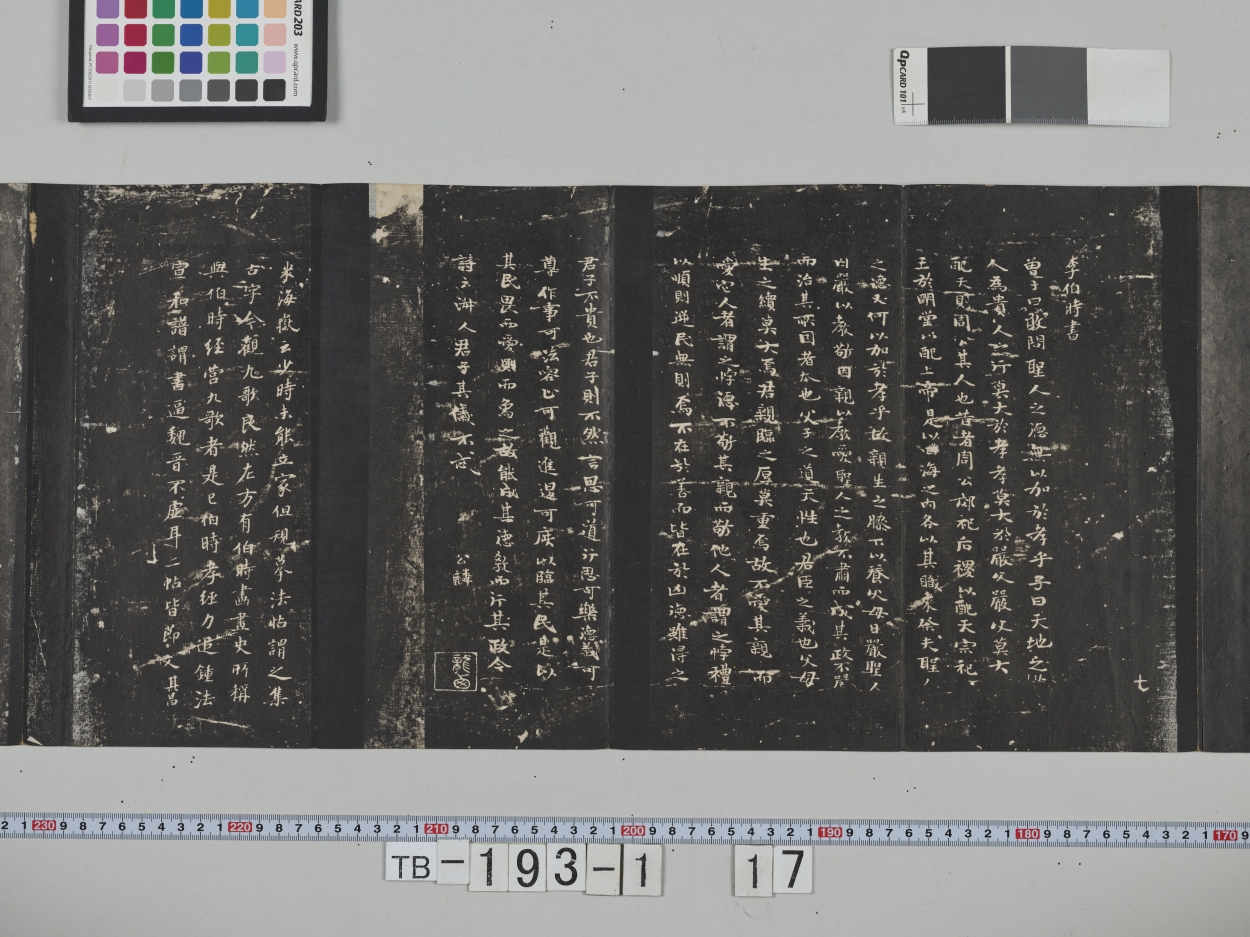 李伯時書
曾子曰敢問聖人之德無以加於孝乎子曰天地之性
人為貴人之行莫大於孝孝莫大於嚴父嚴父莫大
配天則周公其人也昔者周公郊祀后稷以配天宗祀
王於明堂以配上帝是以海之內各以其職來祭夫聖人
之德又何以加於孝乎故親生之膝下以養父母日嚴聖人
因嚴以教敬因親以教愛聖人之教不肅而成其政不嚴
而治其所因者本也父子之道天性也君臣之義也父母
生之續莫大焉君親臨之厚莫重焉故不愛其親而
愛它人者謂之悖德不敬其親而敬他人者謂之悖禮
以順則逆民無則焉不在於善而皆在於凶德雖得之
君子不貴也君子則不然言思可道行思可樂德義可
尊作事可法容止可觀進退可度以臨其民是以
其民畏而愛之則而象之故能成其德教而行其政令
詩云淑人君子其儀不忒
公麟
七
米海嶽云少時未能立家但規摹法帖謂之集
古字今觀九歌良然左方有伯時畫畫史所稱
與伯時經營九歌者是已伯時孝經力追鍾法
宣和譜謂書逼魏晉不虛耳二帖皆節文其昌
QPCARD 203
www.qpcard.com
QPCARD 101 v4
TB-193-1 17